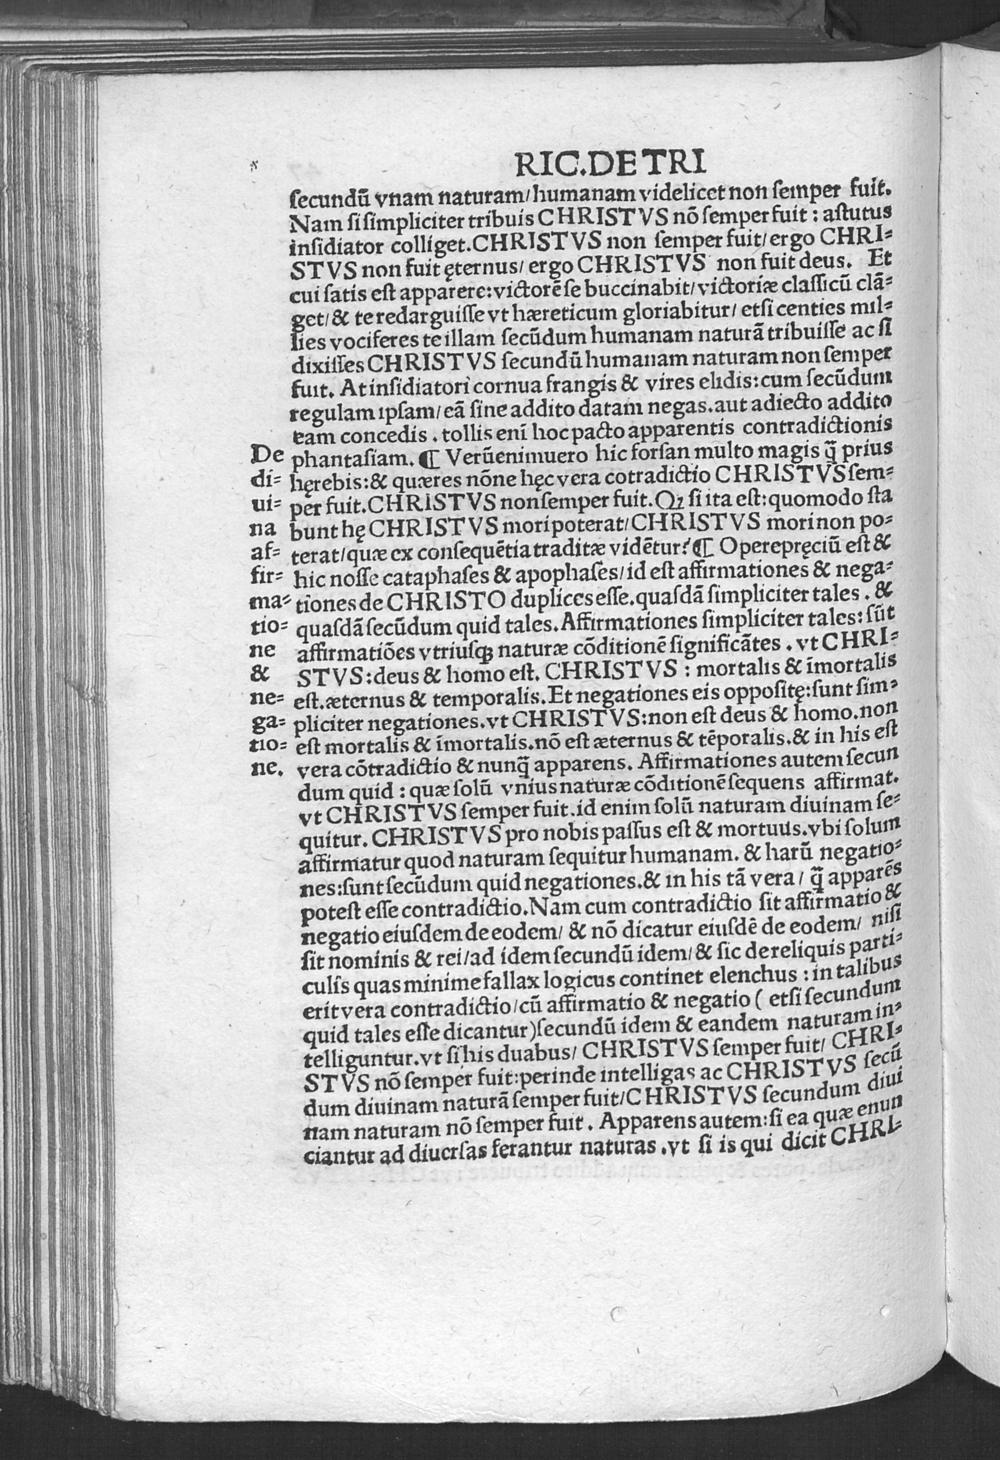 RIC.DE TRI
ſecundũ vnam naturam/humanam videlicet non ſemper fuit.
Nam ſi ſimpliciter tribuis CHRISTVS nõ ſemper fuit : aſtutus
inſidiator colliget.CHRISTVS non ſemper fuit/ ergo CHRI⸗
STVS non fuit ęternus/ ergo CHRISTVS non fuit deus. Et
cui ſatis eſt apparere:victorẽ ſe buccinabit/ victoriæ claſſicũ clã⸗
get/ & te redarguiſſe vt hæreticum gloriabitur/ etſi centies mil⸗
lies vociferes te illam ſecũdum humanam naturã tribuiſſe ac ſi
dixiſſes CHRISTVS ſecundũ humanam naturam non ſemper
fuit. At inſidiatori cornua frangis & vires elidis:cum ſecũdum
regulam ipſam/ eã ſine addito datam negas.aut adiecto addito
eam concedis . tollis eni᷈ hoc pacto apparentis contradictionis
phantaſiam. ¶ Verũenimuero hic forſan multo magis q̃ prius
hęrebis:& quæres nõne hęc vera cotradictio CHRISTVS ſem⸗
per fuit.CHRISTVS non ſemper fuit.Qꝫ ſi ita eſt:quomodo ſta
bunt hę CHRISTVS mori poterat/ CHRISTVS mori non po⸗
terat/ quæ ex conſequẽtia traditæ vidẽtur? ¶ Operepręciũ eſt &
hic noſſe cataphaſes & apophaſes/ id eſt affirmationes & nega⸗
tiones de CHRISTO duplices eſſe.quaſdã ſimpliciter tales . &
quaſdã ſecũdum quid tales. Affirmationes ſimpliciter tales: ſũt
affirmatiões vtriuſqꝫ naturæ cõditionẽ ſignificãtes . vt CHRI⸗
STVS:deus & homo eſt. CHRISTVS : mortalis & i᷈mortalis
eſt.æternus & temporalis.Et negationes eis oppoſitę:ſunt ſim⸗
pliciter negationes.vt CHRISTVS:non eſt deus & homo.non
eſt mortalis & i᷈mortalis.nõ eſt æternus & tẽporalis.& in his eſt
vera cõtradictio & nunq̃ apparens. Affirmationes autem ſecun
dum quid : quæ ſolũ vnius naturæ cõditionẽ ſequens affirmat.
vt CHRISTVS ſemper fuit.id enim ſolũ naturam diuinam ſe⸗
quitur. CHRISTVS pro nobis paſſus eſt & mortuus.vbi ſolum
affirmatur quod naturam ſequitur humanam. & harũ negatio⸗
nes:ſunt ſecũdum quid negationes.& in his tã vera / q̃ apparẽs
poteſt eſſe contradictio.Nam cum contradictio ſit affirmatio &
negatio eiuſdem de eodem/ & nõ dicatur eiuſdẽ de eodem/ niſi
ſit nominis & rei/ad idem ſecundũ idem/ & ſic de reliquis parti⸗
culis quas minime fallax logicus continet elenchus : in talibus
erit vera contradictio/ cũ affirmatio & negatio ( etſi ſecundum
quid tales eſſe dicantur)ſecundũ idem & eandem naturam in⸗
telliguntur.vt ſi his duabus/ CHRISTVS ſemper fuit/ CHRI⸗
STVS nõ ſemper fuit:perinde intelligas ac CHRISTVS ſecũ
dum diuinam naturã ſemper fuit/CHRISTVS ſecundum diui
nam naturam nõ ſemper fuit . Apparens autem:ſi ea quæ enun
ciantur ad diuerſas ferantur naturas .vt ſi is qui dicit CHRI⸗
De
di⸗
ui⸗
na
af⸗
fir⸗
ma⸗
tio⸗
ne
&
ne⸗
ga⸗
tio⸗
ne.